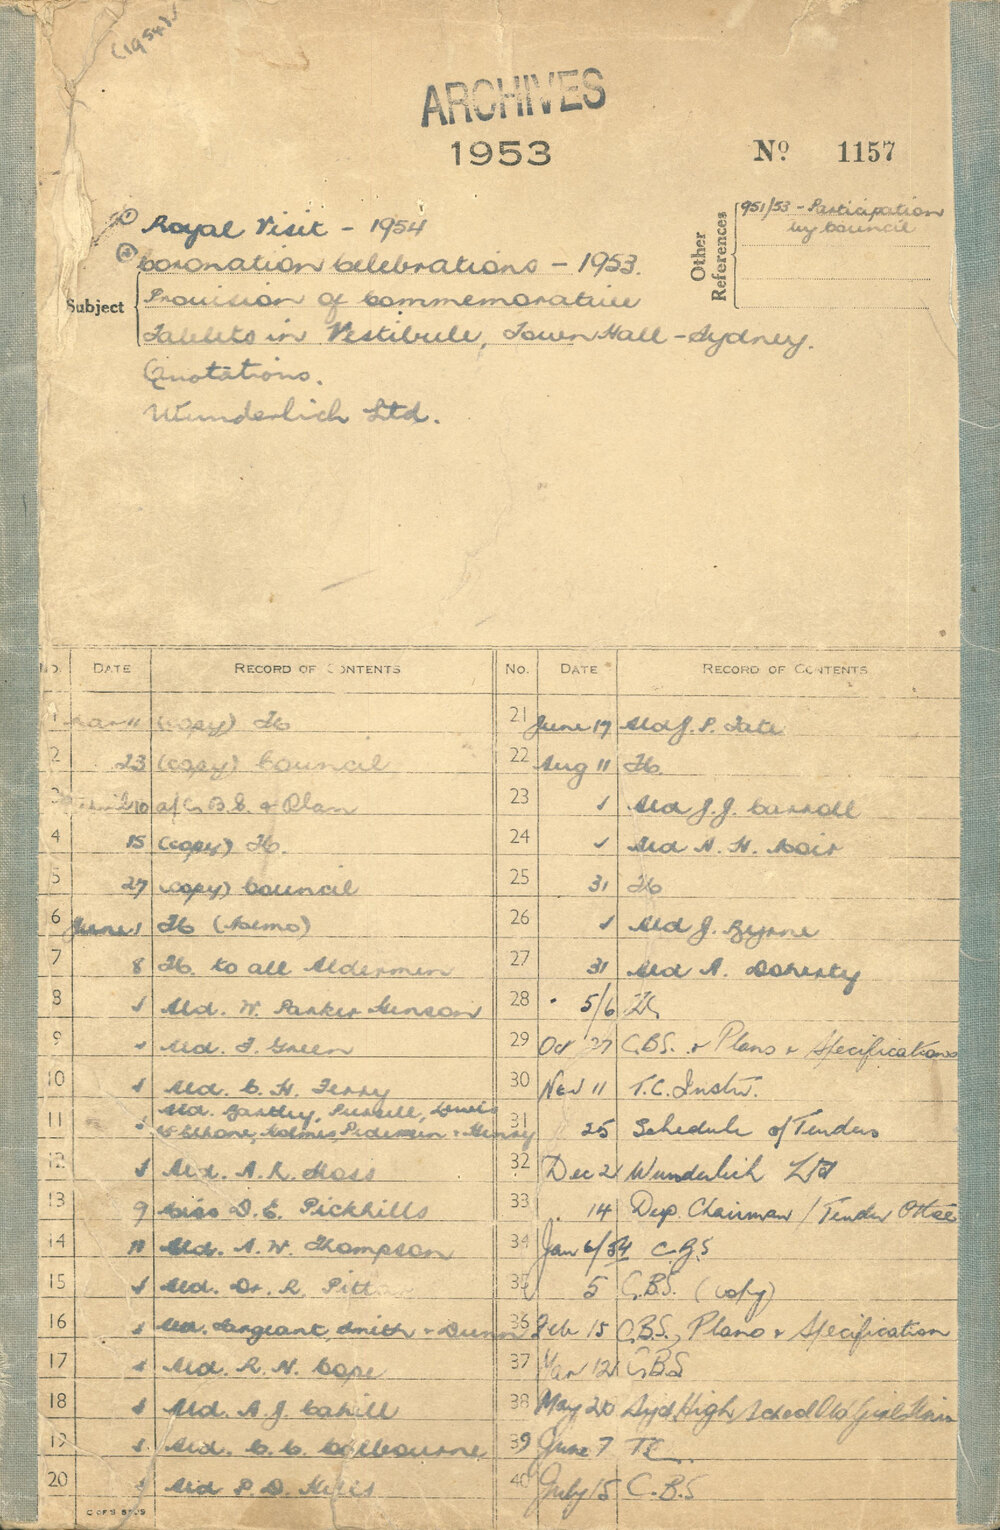 (1954)
ARCHIVES
1953
No 1157
Other References
951/53 - Participation
by Council
Subject
① Royal Visit - 1954
② Coronation Celebrations - 1953.
Provision of Commemorative
Tablets in Vestibule, Town Hall - Sydney.
Quotations.
Wunderlich Ltd.
No. DATE RECORD OF CONTENTS
1 Mar 11 (copy)
2 23 (copy) Council
3 April 10 B.S. & Plan
4 15 (copy)
5 27 (copy) Council
6 June 1 (Memo)
7 8 to all Aldermen
8 Ald. W. Parker
9 Ald. F. Green
10 Ald. C. H. Ferry
11 Ald. Bartley, Pursell, Lewis
Holmes Pideman & Henry
12 Ald. A. R. Moss
13 9 Miss D. E. Pickhills
14 11 Ald. A. W. Thompson
15 Ald. Dr. R. Pitt
16 Ald. Sargeant, Smith & Dunn
17 Ald. R. N. Cope
18 Ald. A. J. Cahill
19 Ald. C. C. Colbourne
20 Ald P. D. Hills
No. DATE RECORD OF CONTENTS
21 June 17 Ald J. P. Tate
22 Aug 11
23 Ald J. J. Carroll
24 Ald N. H.
25 31
26 Ald J. Byrne
27 31 Ald A. Doherty
28 5/6
29 Oct 27 C.B.S. & Plans & Specifications
30 Nov 11 T.C. Instr.
31 25 Schedule of Tenders
32 Dec 2 Wunderlich Ltd
33 14 Dep. Chairman / Tender Cttee
34 Jan 6/54
35 5 C.B.S. (copy)
36 Feb 15 C.B.S., Plans & Specification
37 Mar 12 C.B.S
38 May 20 Syd High School Old Girls Union
39 June 7
40 July 15 C.B.S